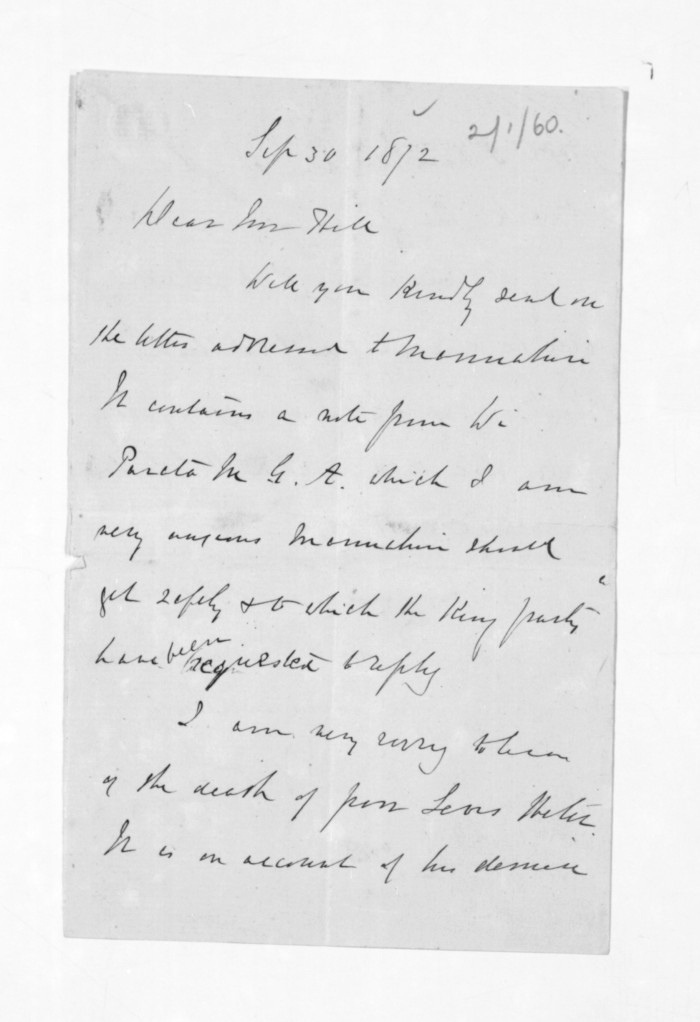 2/1/60.
Sep 30 1872
Dear Mr Hill
Will you kindly send on
the letter addressed to Manuhiri
It contains a note from Wi
Parata M G. A. which I am
very anxious Manuhiri should
get safely & to which the King party
have been requested to reply
I am very sorry to hear
of the death of poor Hetit.
It is on account of his demise